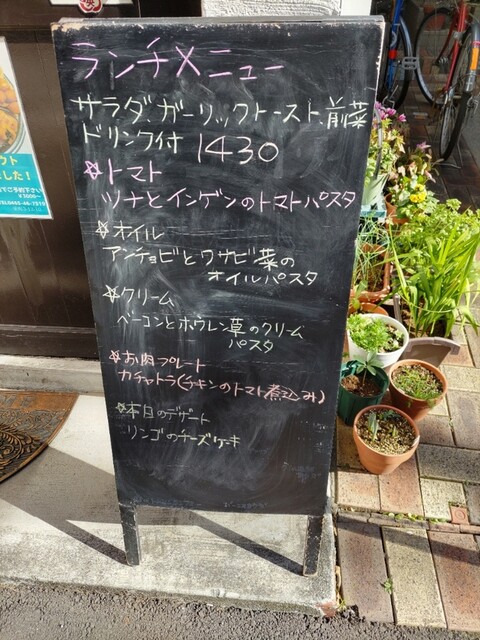 ランチメニュー
サラダ、ガーリックトースト、前菜
ドリンク付 1430
☆トマト
ツナとインゲンのトマトパスタ
☆オイル
アンチョビとワサビ菜の
オイルパスタ
☆クリーム
ベーコンとホウレン草のクリーム
パスタ
☆お肉プレート
カチャトラ(チキンのトマト煮込み)
☆本日のデザート
リンゴのチーズケーキ